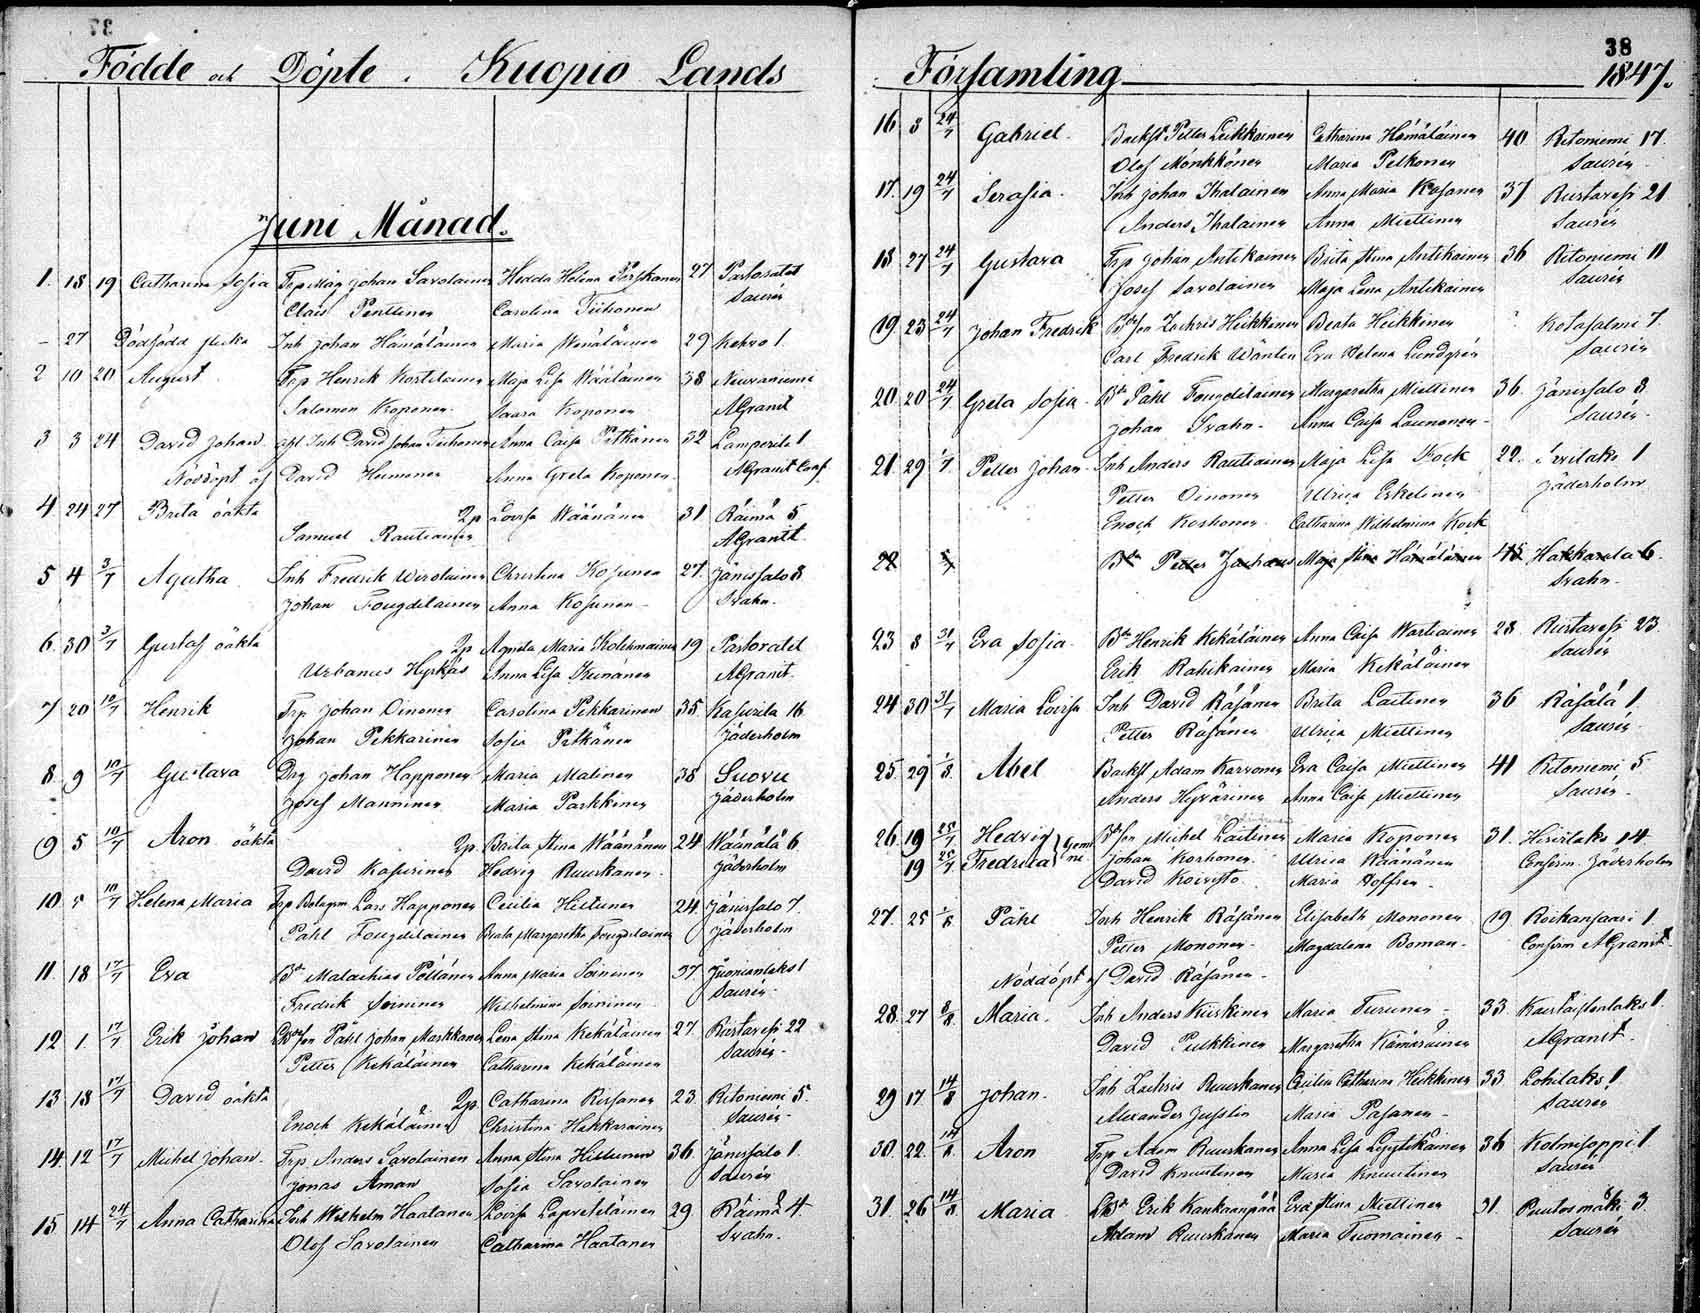 Födde och Döpte i Kuopio Lands
Juni Månad.
1. 18 19 Catharina Sofia Johan Savolainen Hedda Helena 27
Claës Penttinen Carolina Tiihonen Saurén
- 27 Dödfödd flicka Inh Johan Hämäläinen Maria Wänäläinen 29 Kehvo 1.
2 10 20 August Trp Henrik Maja Lisa Wääläinen 38 Neuvaniemi
Salomon Koponen Saara Koponen AGranit
3 3 24 David Johan Inh David Johan Tiihonen Anna Caisa Pitkänen 32 Lamperila 1
Nöddöpt af David Heinonen Anna Greta Koponen AGranit Conf.
4 24 27 Brita oäkta Qp Lovisa Wäänänen 31 Räimä 5
Samuel Rautiainen AGranit
5 4 3/7 Agatha Inh Fredrik Wirolainen Christina Kosunen 27. Jänissalo 8
Johan Fougdilainen Anna Kosunen - Svahn.
6. 30 3/7 Gustaf oäkta Qp Agneta Maria Kolehmainen 19 Pastoratet
Urbanus Hyrkäs Anna Lisa Keinänen AGranit.
7 20 10/7 Henrik Trp Johan Oinonen Carolina Pekkarinen 35 Kasurila 16
Johan Pekkarinen Sofia Pitkänen Jäderholm
8. 9 10/7 Gustava Drg Johan Happonen Maria Malinen 38 Suovu
Josef Manninen Maria Parkkinen Jäderholm
9 5 10/7 Aron oäkta Qp. Brita Stina Wäänänen 24 Wäänälä 6
David Kasurinen Hedvig Ruuskanen. Jäderholm
10. 5 10/7 Helena Maria Trp Lars Happonen Cecilia Hiltunen 24. Jänissalo 7.
Påhl Fougdilainen Beata Margaretha Fougdilainen Jäderholm
11. 18 17/7 Eva Bd Malachias Pöllänen Anna Maria Soininen 37 Juonionlaks 1
Fredrik Soininen Wilhelmina Soininen Saurén.
12 1. 17/7 Erik Johan Påhl Johan Markkanen Lena Stina Kekäläinen 27. Ristavesi 22
Petter Kekäläinen Catharina Kekäläinen Saurén.
13 13 17/7 David oäkta Qp. Catharina Rissanen 23 Ritoniemi 5.
Enoch Kekäläinen Christina Hakkarainen Saurén.
14. 12 17/7 Michel Johan. Trp Anders Savolainen Anna Stina Hiltunen 36. Jänissalo 1.
Jonas Aman Sofia Savolainen Saurén
15 14 24/7 Anna Catharina Inh Wilhelm Haatanen Lovisa Lapveteläinen 29 Räimä 4.
Olof Savolainen Catharina Haatanen Svahn.
38
Församling 1847.
16. 3 24/7 Gabriel. Backst Petter Leikkainen Catharina Hämäläinen 40 Ritoniemi 17.
Olof Mönkkönen Maria Pelkonen Saurén
17. 19 24/7 Serafia. Inh Johan Ihalainen Anna Maria Kasanen 37 Rustavesi 21
Anders Ihalainen Anna Miettinen Saurén
18. 27 24/7 Gustava Trp Johan Antikainen Brita Anna Antikainen 36 Ritoniemi 11
Josef Savolainen Maja Lena Antikainen Saurén
19 23 24/7 Johan Fredrik Zachris Heikkinen Beata Heikkinen Kotasalmi 7.
Carl Fredrik Wänlin Eva Helena Lundgrén Saurén
20. 20 24/7 Greta Sofia. Bd Påhl Fougdilainen Margaretha Miettinen 36. Jänissalo 8.
Johan Svahn. Anna Caisa Launonen. Saurén.
21. 29 1/7 Petter Johan. Inh Anders Rautiainen Maja Lisa Kock 22. 1
Petter Oinonen Ulrica Eskelinen Jäderholm
Enoch Korhonen Catharina Wilhelmina Kock
22 Petter Zachaus Maja Stina Hämäläinen 45 Hakkarala 6.
Svahn.
23 8 31/7 Eva Sofia. Bd Henrik Kekäläinen Anna Caisa Wartiainen 28. Ristavesi 23
Erik Rahikainen Maria Kekäläinen Saurén
24 30 31/7 Maria Lovisa Inh David Räsänen Brita Laitinen 36 Räsälä 1.
Petter Räsänen Ulrica Miettinen Saurén.
25. 29 1/8. Abel Backst Adam Karvonen Eva Caisa Miettinen 41 Ritoniemi 5
Anders Hyvärinen Anna Caisa Miettinen Saurén.
26. 19 25/7 Hedvig Michel Laitinen Maria Koponen 31. Hirvilaks 14.
19 25/7 Fredrica Gemini Johan Korhonen Ulrica Väänänen Confirm. Jäderholm
David Koivisto Maria Toffren.
27. 25 1/8 Påhl Inh Henrik Räsänen Elisabeth Mononen 19 Roikansaari 1.
Petter Mononen. Magdalena Boman. Confirm AGranit
Nöddöpt af David Räsänen.
28. 27 8/8 Maria. Inh Anders Kiiskinen Maria Turunen. 33. 1.
David Pulkkinen Margaretha Kämäräinen AGranit.
29 17 14/8 Johan. Inh Zachris Ruuskanen Cecilia Catharina Heikkinen 33 Lohilaks 1
Alexander Jusslin Maria Pasanen. Saurén
30. 22. 14/8 Aron Trp Adam Ruuskanen Anna Lisa 36 Kolmisoppi 1.
David Knuutinen Maria Knuutinen Saurén
31. 26 14/8 Maria Erik Kankaanpää Eva Stina Miettinen 31. Puutosmäki 3.
Adam Ruuskanen Maria Tuomainen. Saurén